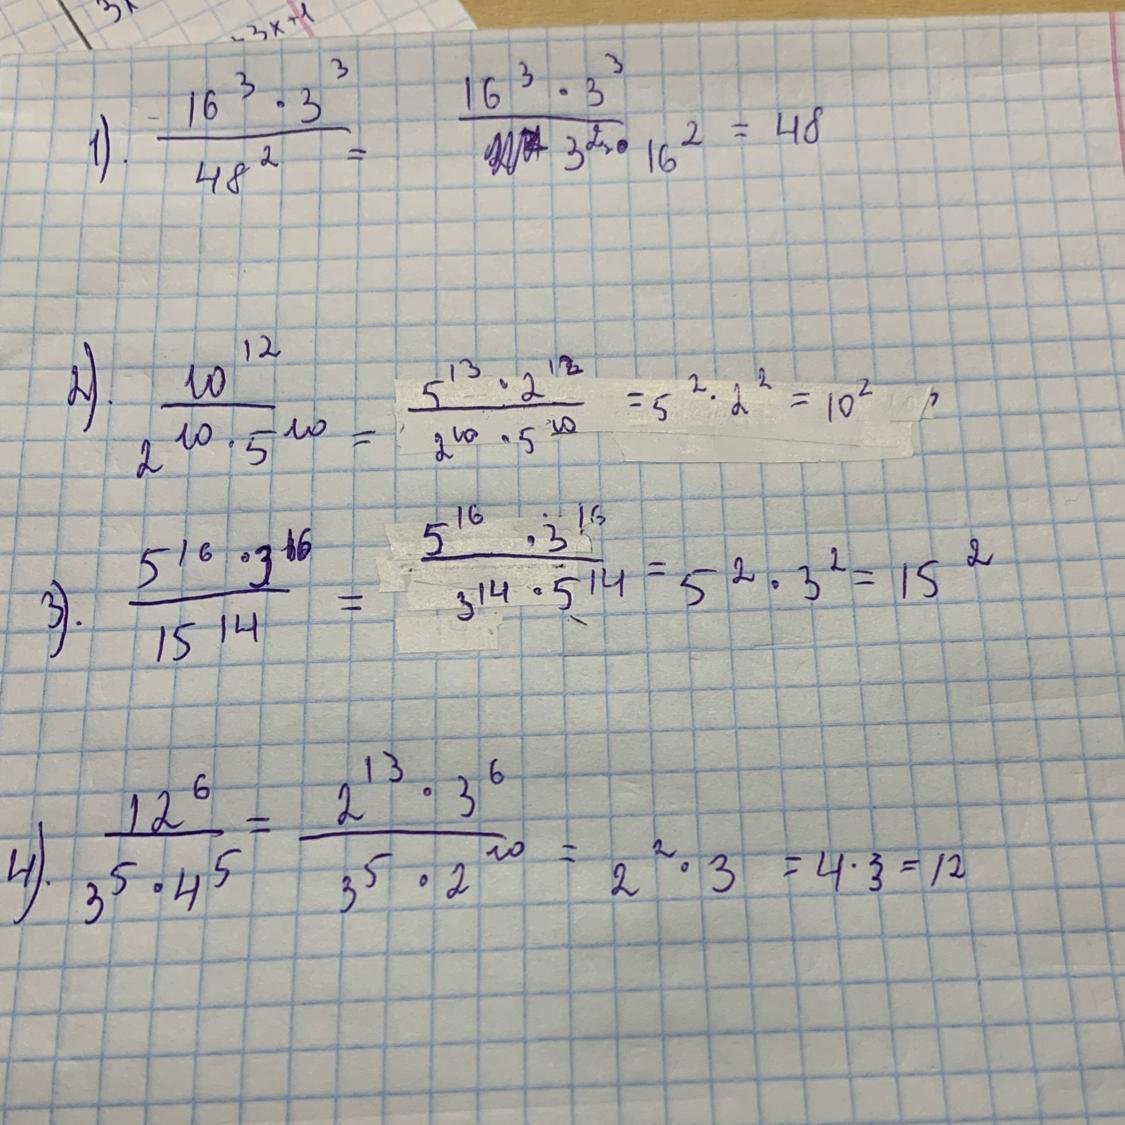 3x
-3x+1
1). 16^3 · 3^3 / 48^2 = 16^3 · 3^3 / 3^2 · 16^2 = 48
2). 10^12 / 2^10 · 5^10 = 5^13 · 2^12 / 2^10 · 5^10 = 5^2 · 2^2 = 10^2
3). 5^16 · 3^16 / 15^14 = 5^16 · 3^16 / 3^14 · 5^14 = 5^2 · 3^2 = 15^2
4). 12^6 / 3^5 · 4^5 = 2^13 · 3^6 / 3^5 · 2^10 = 2^2 · 3 = 4 · 3 = 12